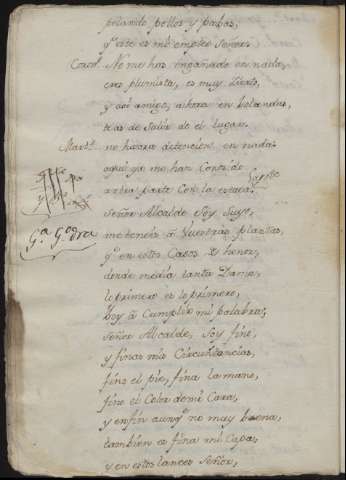 pelando pollos y pabas,
q.e este es mi empleo Señor.
Cond. No me has engañado en nada,
eres plumista, es muy cierto,
y así amigo, ahora en bolandas,
de salir de el lugar.
Mart. no havrá detencion en nada
aqui ya me han
parte Con la estaca.
Señor Alcalde Soy Suyo,
me teneis á Vuestras plantas,
q.e en estos Casos de honor,
donde media tanta Dama,
lo primero es lo primero,
Voy á Cumplir mi palabra;
Señor Alcalde, Soy fino,
y finas mis Circunstancias,
fino el pie, fina la mano,
fino el Color de mi Cara,
y en fin aunq.e no muy buena,
tambien es fina mi Capa,
y en estos lances Señor,